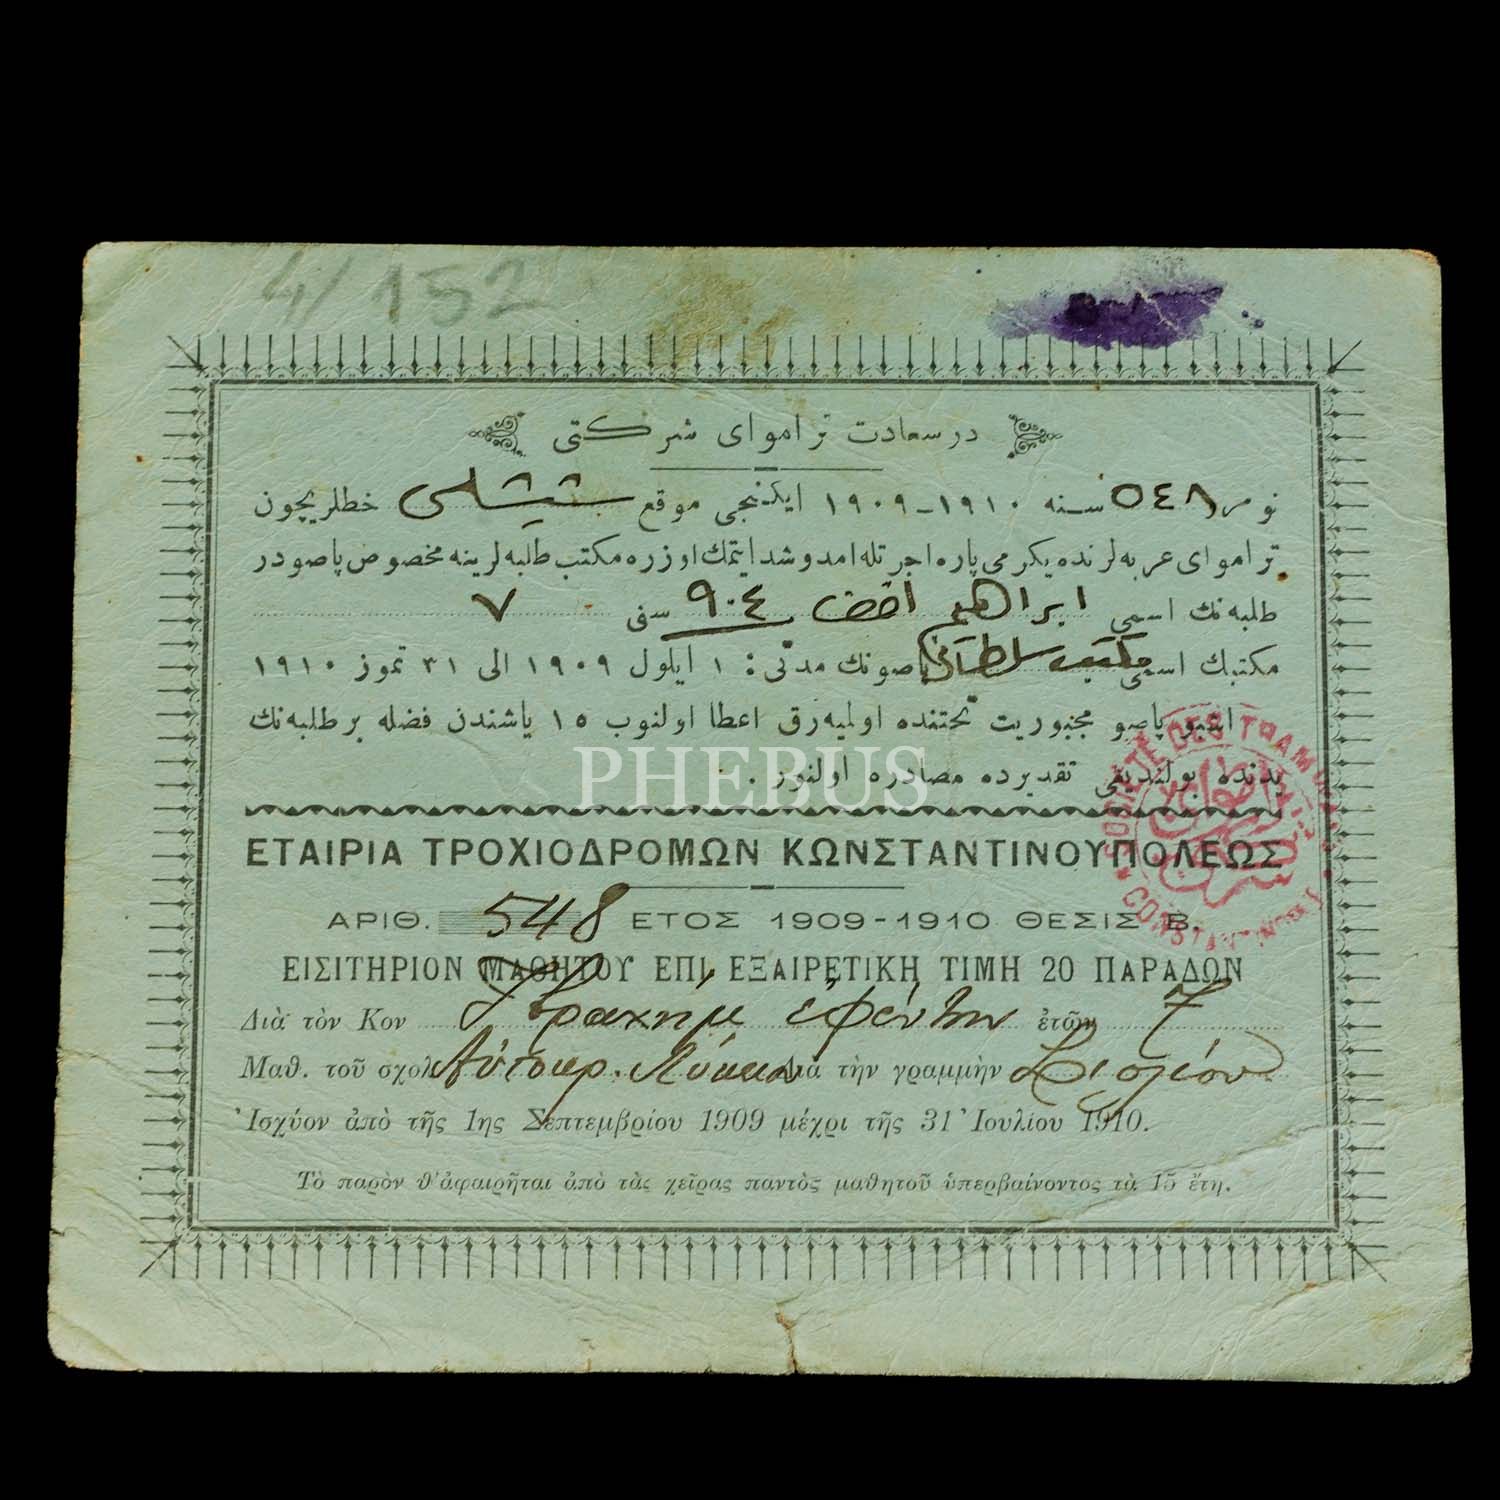 4/152
در سعادت تراموای شركتی
نومر ٥٤٨ سنه ١٩١٠-١٩٠٩ ایكنجی موقع شیشلی خطلریچون
تراموای عربه‌لرنده یكرمی پاره اجرتله امد و شد ایتمك اوزره مكتب طلبه‌لرینه مخصوص پاصودر
طلبه‌نك اسمی ابراهیم افندی ٩٠٤ سنی ٧
مكتبك اسمی مكتب سلطانی پاصونك مدتی: ١ ایلول ١٩٠٩ الی ٣١ تموز ١٩١٠
اشبو پاصو مجبوریت تحتنده اولمیه‌رق اعطا اولنوب ١٥ یاشندن فضله بر طلبه‌نك
یدنده بولندیغی تقدیرده مصادره اولنور.
PHEBUS
ΕΤΑΙΡΙΑ ΤΡΟΧΙΟΔΡΟΜΩΝ ΚΩΝΣΤΑΝΤΙΝΟΥΠΟΛΕΩΣ
ΑΡΙΘ. 548 ΕΤΟΣ 1909-1910 ΘΕΣΙΣ Β.
ΕΙΣΙΤΗΡΙΟΝ ΜΑΘΗΤΟΥ ΕΠΙ ΕΞΑΙΡΕΤΙΚΗ ΤΙΜΗ 20 ΠΑΡΑΔΩΝ
Διὰ τὸν Κον Ἰβραχὴμ ἐφέντην ἐτῶν 7
Μαθ. τοῦ σχολ. Αὐτοκρ. Λύκειον Διὰ τὴν γραμμὴν Σισλίου
Ἰσχύον ἀπὸ τῆς 1ης Σεπτεμβρίου 1909 μέχρι τῆς 31 Ἰουλίου 1910.
Τὸ παρὸν θ' ἀφαιρῆται ἀπὸ τὰς χεῖρας παντὸς μαθητοῦ ὑπερβαίνοντος τὰ 15 ἔτη.
SOCIÉTÉ DES TRAMWAYS
CONSTANTINOPLE